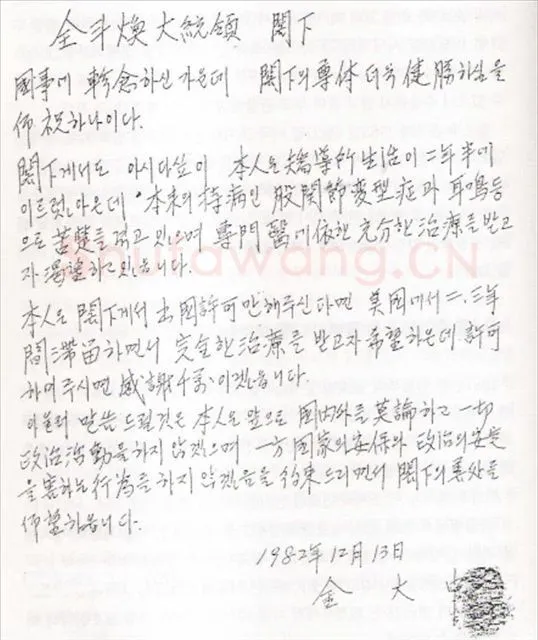 全斗煥大統領 閣下
國事에 軫念하신 가운데 閣下의 尊体 더욱 健勝하심을
仰祝하나이다.
閣下께서도 아시다싶이 本人은 矯導所生活이 二年半에
이르렀아온데 本來의 持病인 股關節変型症과 耳鳴等
으로 苦楚를 겪고 있으며 專門醫에 依한 充分한 治療를 받고
자 渴望하고 있읍니다.
本人은 閣下께서 出國許可만 해주신다면 美國에서 二, 三年
間 滯留하면서 完全한 治療를 받고자 希望하온데 許可
하여 주시면 感謝千萬이겠읍니다.
아울러 말씀드릴것은 本人은 앞으로 國內外를 莫論하고 一切
政治活動을 하지 않겠으며 一方 國家의 安保와 政治의 安定
을 害하는 行為를 하지 않겠음을 約束드리면서 閣下의 善処를
仰望하옵니다.
1982年 12月 13日
金大中
Shufawang.CN